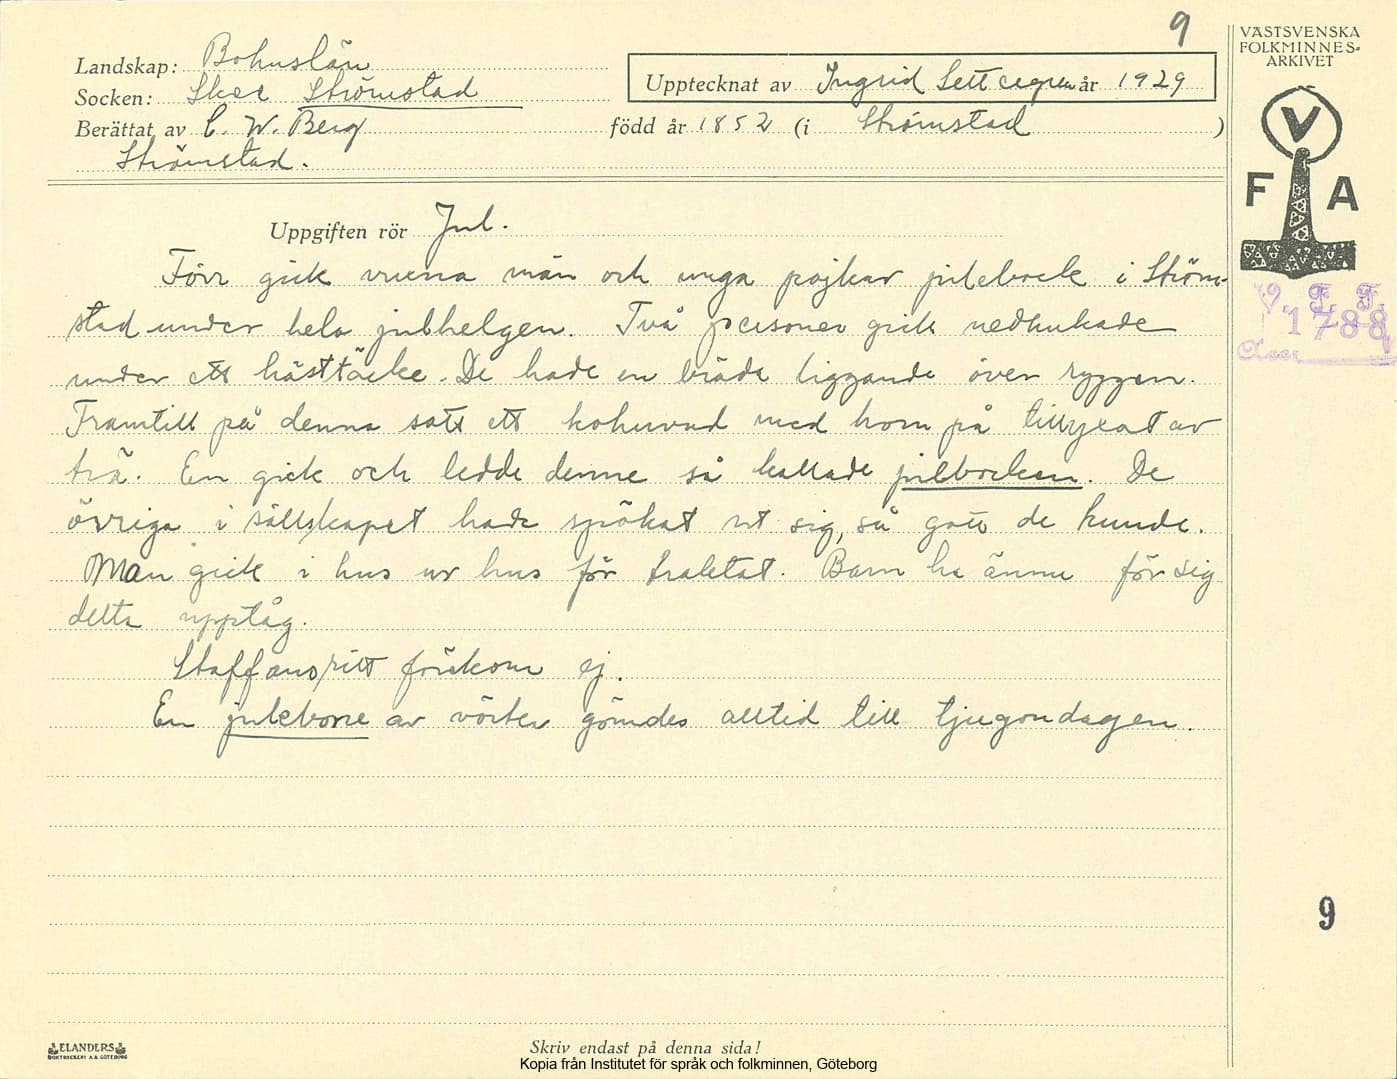 9
VÄSTSVENSKA
FOLKMINNES-
ARKIVET
Landskap: Bohuslän
Socken: Skee Strömstad
Upptecknat av Ingrid år 1929
Berättat av C. W. Berg född år 1852 (i Strömstad )
Strömstad.
V
F A
V. F. F.
1788
Acc
Uppgiften rör Jul.
Förr gick vuxna män och unga pojkar julebock i Ström-
stad under hela julhelgen. Två personer gick nedhukade
under ett hästtäcke. De hade en bräda liggande över ryggen.
Framtill på denna satt ett kohuvud med horn på tillyxat av
trä. En gick och ledde denne så kallade julbocken. De
övriga i sällskapet hade spökat ut sig, så gott de kunde.
Man gick i hus ur hus för traktat. Barn ha ännu för sig
detta upptåg.
Staffansritt förekom ej.
En julebone av vörter gömdes alltid till tjugondagen.
9
ELANDERS
BOKTRYCKERI A.B. GÖTEBORG
Skriv endast på denna sida!
Kopia från Institutet för språk och folkminnen, Göteborg